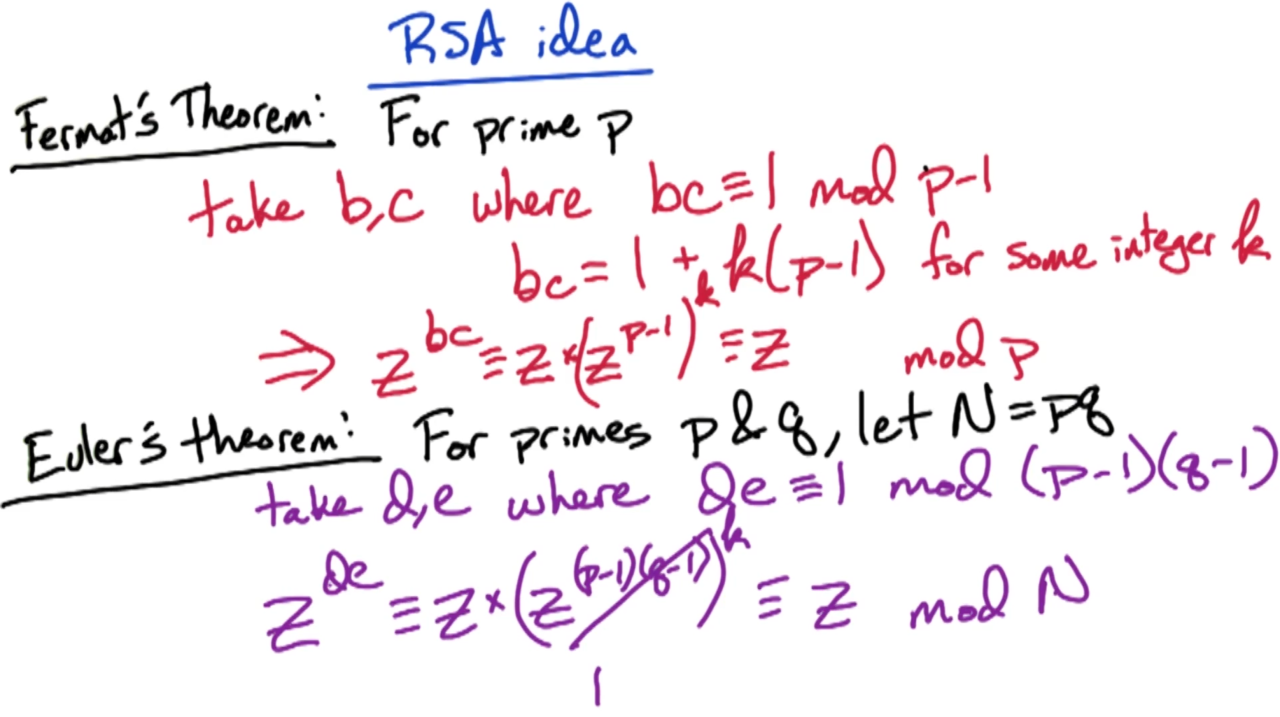 RSA idea
Fermat's Theorem: For prime p
take b,c where bc≡1 mod p-1
bc = 1 + k(p-1) for some integer k
⇒ z^{bc} ≡ z × (z^{p-1})^k ≡ z mod p
Euler's theorem: For primes p & q, let N = pq
take d,e where de ≡ 1 mod (p-1)(q-1)
z^{de} ≡ z × (z^{(p-1)(q-1)})^k ≡ z mod N
1